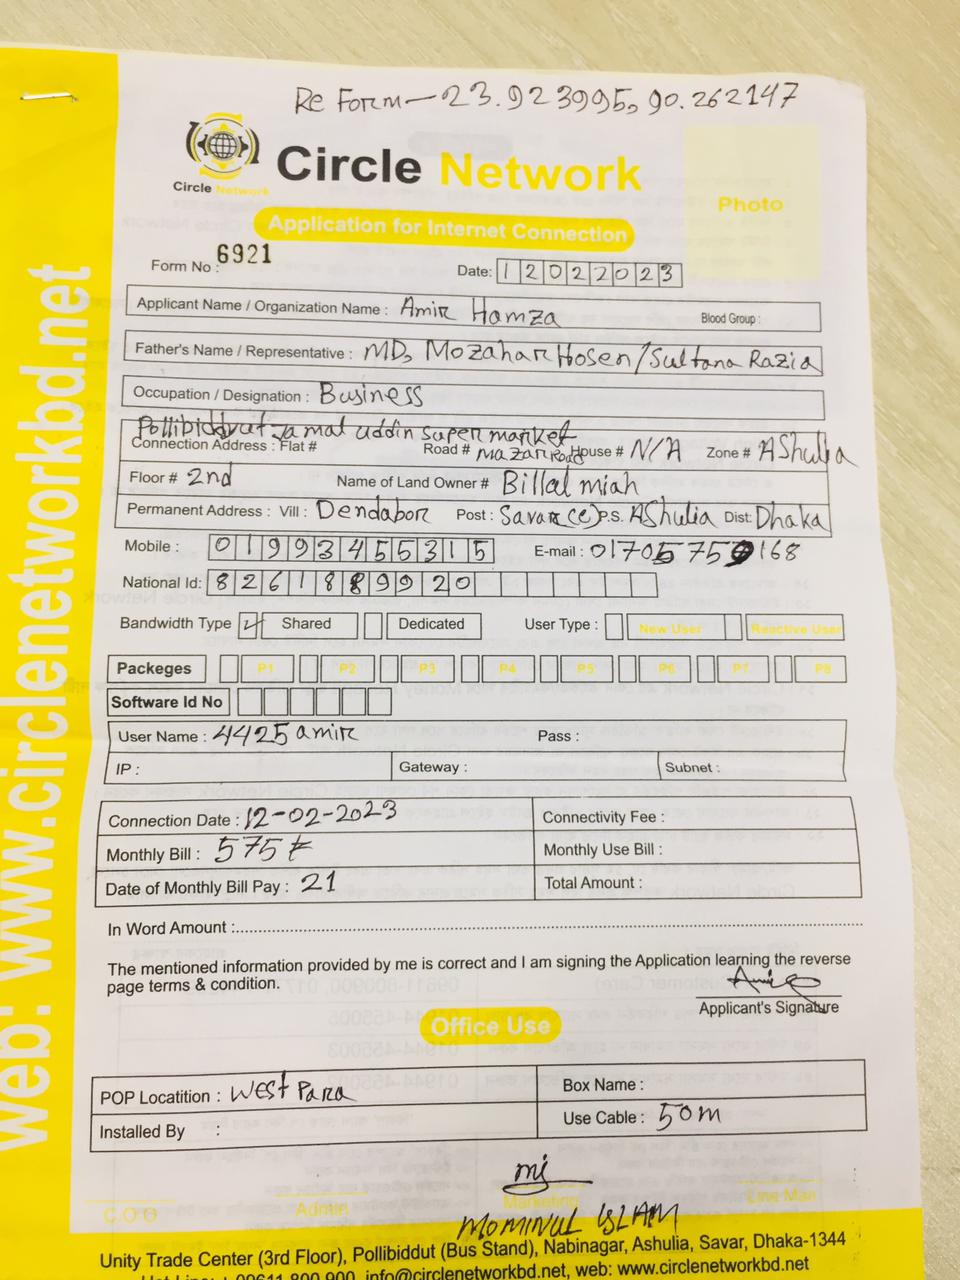 Re Form - 23.923995, 90.262147
Circle Network
Circle Network
Photo
Application for Internet Connection
Form No : 6921
Date: 12022023
Applicant Name / Organization Name : Amir Hamza Blood Group :
Father's Name / Representative : MD, Mozahar Hosen / Sultana Razia
Occupation / Designation : Business
Pollibiddyut Jamal uddin super market
Connection Address : Flat # Road # Mazar Road House # N/A Zone # AShulia
Floor # 2nd Name of Land Owner # Billal miah
Permanent Address : Vill : Dendabor Post : Savar (c) P.S. AShulia Dist: Dhaka
Mobile : 01993455315 E-mail : 01705759168
National Id: 8261889920
Bandwidth Type Shared Dedicated User Type : New User Reactive User
Packeges P1 P2 P3 P4 P5 P6 P7 P8
Software Id No
User Name : 4425amir Pass :
IP : Gateway : Subnet :
Connection Date : 12-02-2023 Connectivity Fee :
Monthly Bill : 575 ₺ Monthly Use Bill :
Date of Monthly Bill Pay : 21 Total Amount :
In Word Amount :
The mentioned information provided by me is correct and I am signing the Application learning the reverse
page terms & condition.
Applicant's Signature
Office Use
POP Locatition : West Para Box Name :
Installed By : Use Cable : 50m
C.O.O Admin Marketing Line Man
MOMINUL ISLAM
Unity Trade Center (3rd Floor), Pollibiddut (Bus Stand), Nabinagar, Ashulia, Savar, Dhaka-1344
Hot Line: + 09611 800 900, info@circlenetworkbd.net, web: www.circlenetworkbd.net
web: www.circlenetworkbd.net